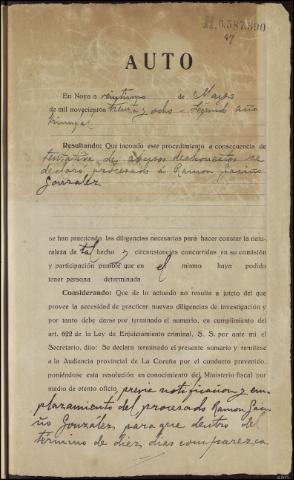 47
AUTO
En Noya a veintiuno de Mayo
de mil novecientos treinta y ocho - Segundo año
triunfal
Resultando: Que incoado este procedimiento a consecuencia de
tentativa de abusos deshonestos se
declaró procesado a Ramon
Gonzalez
se han practicado las diligencias necesarias para hacer constar la natu-
raleza de tal hecho y circunstancias concurridas en su comisión
y participación punible que en el mismo haya podido
tener persona determinada
Considerando: Que de lo actuado no resulta a juicio del que
provee la necesidad de practicar nuevas diligencias de investigación y
por tanto debe darse por terminado el sumario, en cumplimiento del
art. 622 de la Ley de Enjuiciamiento criminal, S. S. por ante mí el
Secretario, dijo: Se declara terminado el presente sumario y remítase
a la Audiencia provincial de La Coruña por el conducto prevenido,
poniéndose esta resolución en conocimiento del Ministerio fiscal por
medio de atento oficio, previa notificación y em-
plazamiento del procesado Ramon
González, para que dentro del
término de diez dias comparezca